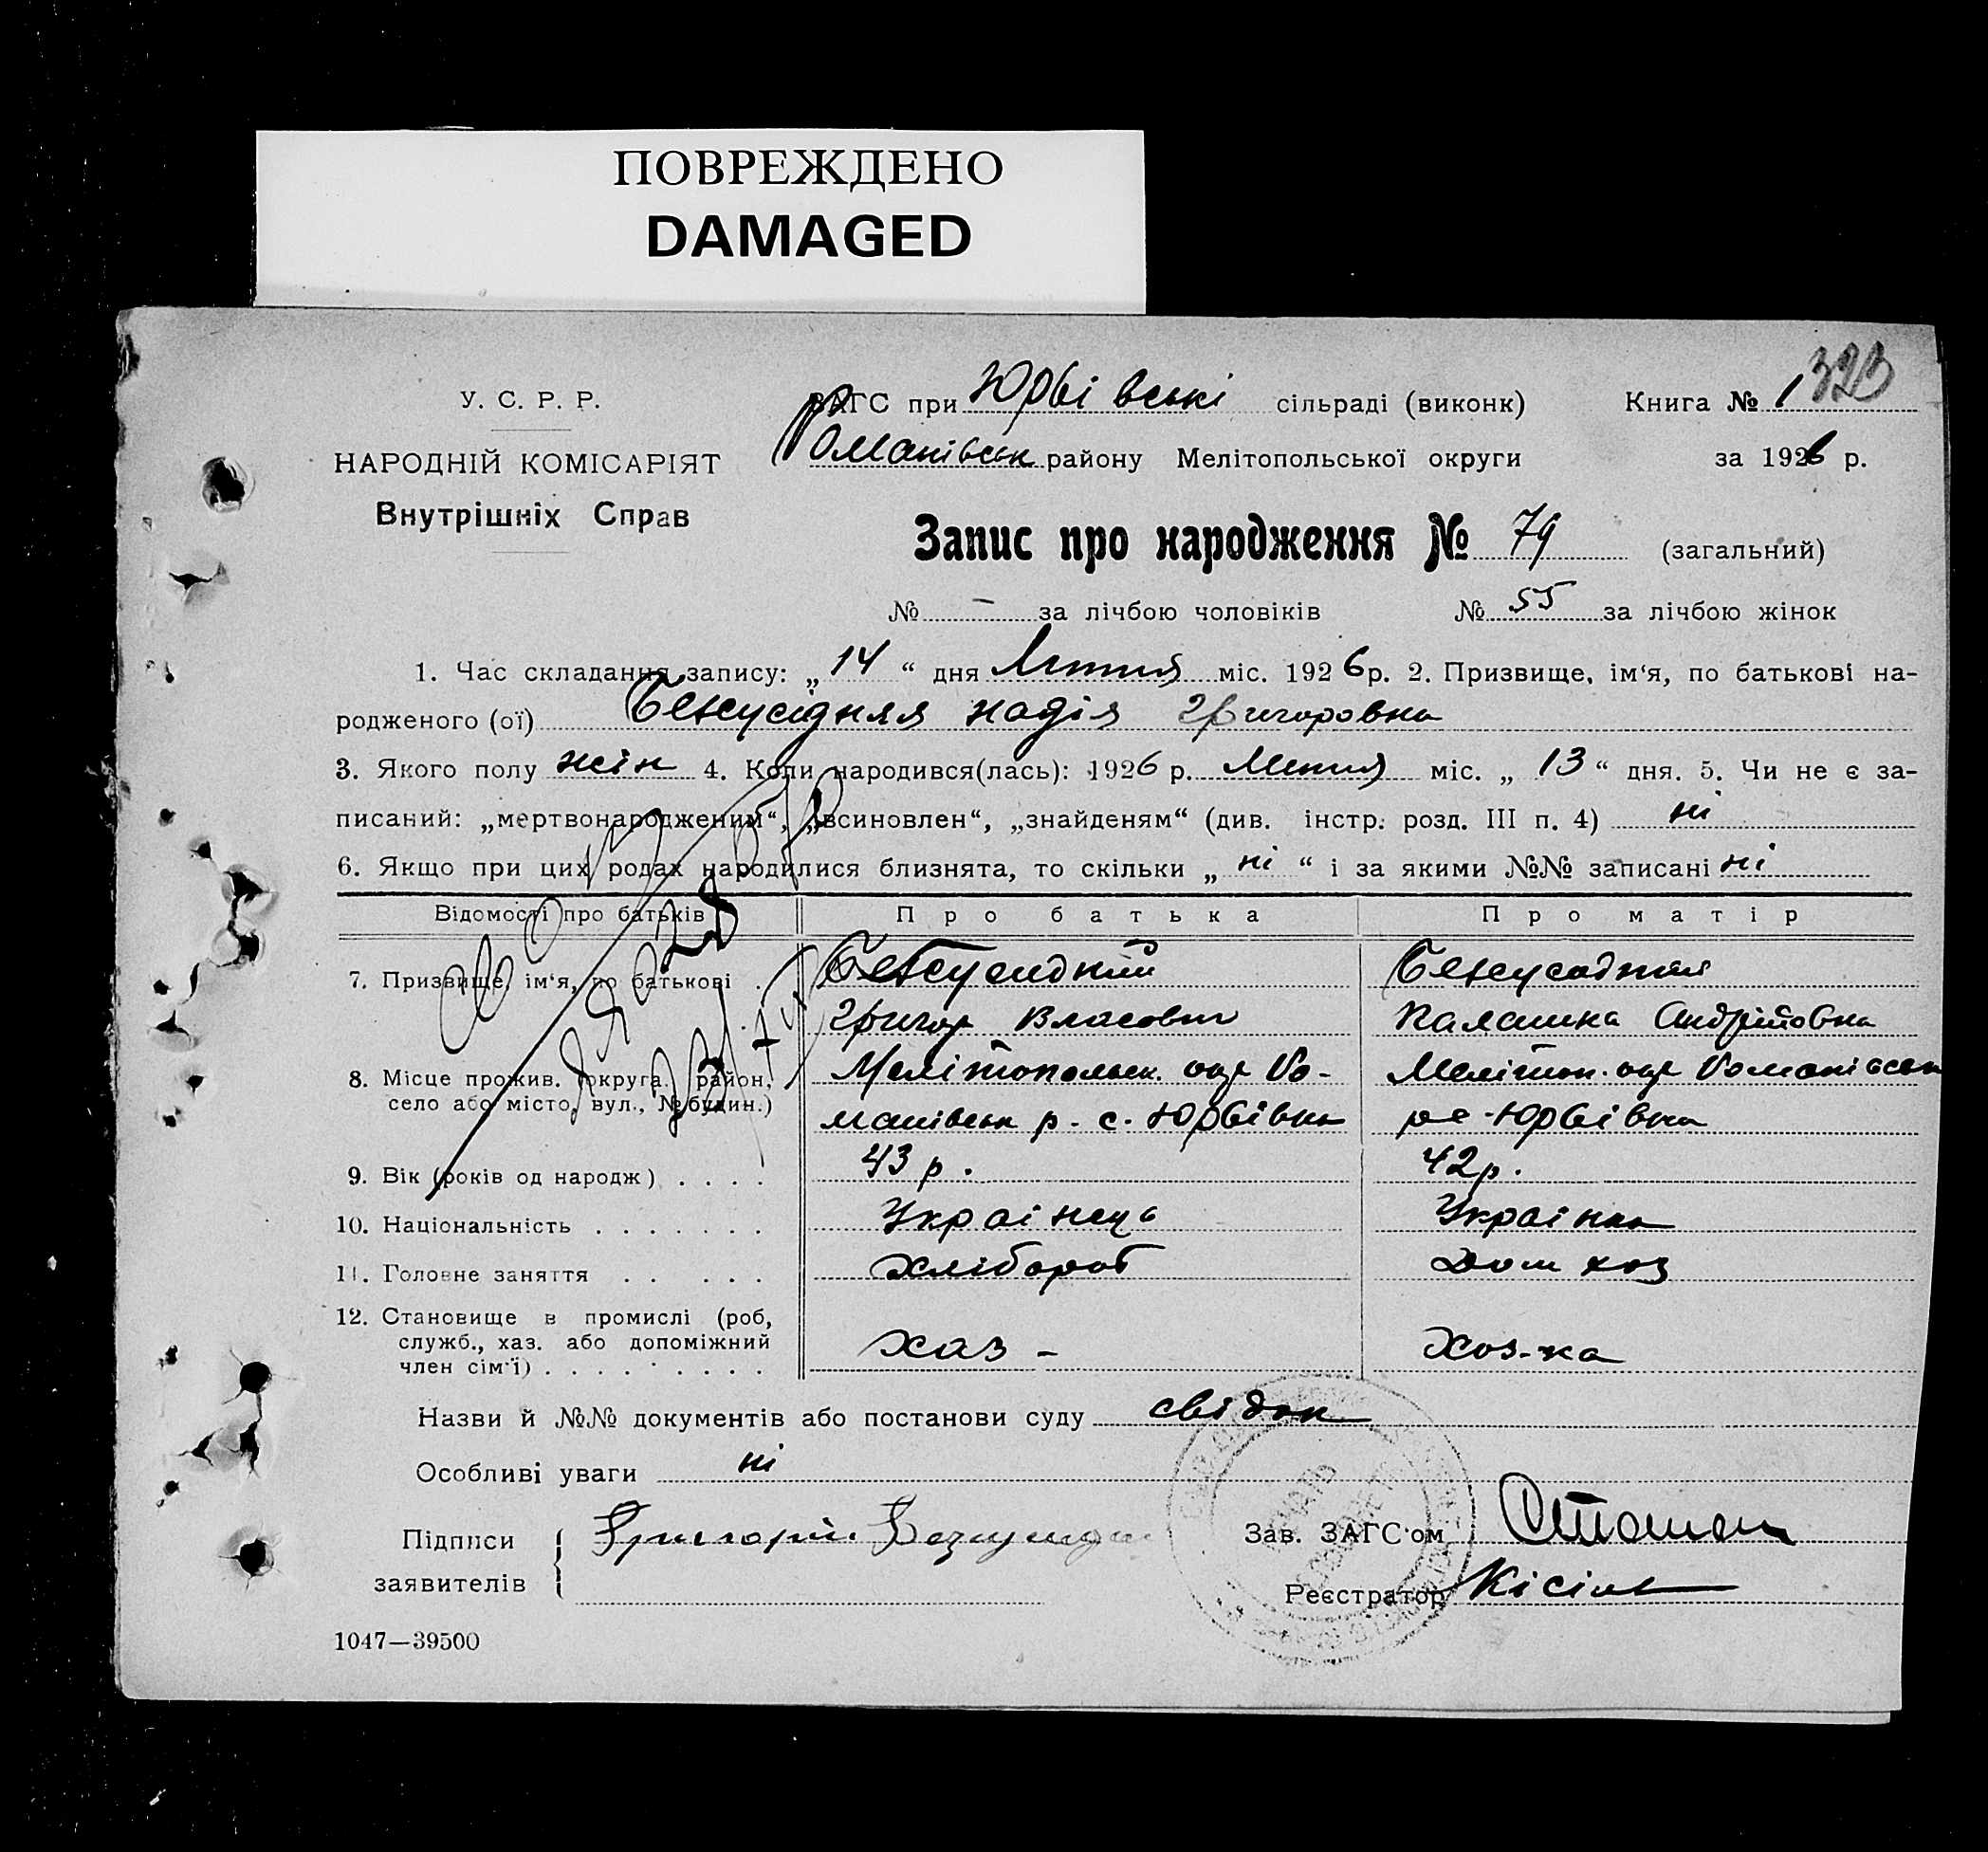 ПОВРЕЖДЕНО
DAMAGED
323
У. С. Р. Р.
НАРОДНІЙ КОМІСАРІЯТ
Внутрішніх Справ
ЗАГС при Юрвівські сільраді (виконк) Книга № 1
Романівськ району Мелітопольської округи за 1926 р.
Запис про народження № 79 (загальний)
№ – за лічбою чоловіків № 55 за лічбою жінок
1. Час складання запису: „14“ дня Лютия міс. 1926 р. 2. Призвище, ім‘я, по батькові на-
родженого (ої) надія григоровна
3. Якого полу жін 4. Коли народився(лась): 1926 р. Лютия міс. „13“ дня. 5. Чи не є за-
писаний: „мертвонародженим“, „всиновлен“, „знайденям“ (див. інстр. розд. III п. 4) ні
6. Якщо при цих родах народилися близнята, то скільки „ні“ і за якими №№ записані ні
Відомості про батьків Про батька Про матір
7. Призвище, ім‘я, по батькові .
григор Власович Палашка Андрійовна
8. Місце прожив. (округа, район, Мелітопольськ. окр Ро- Мелітоп. окр Романівськ
село або місто, вул., № будин.) манівськ р. с. Юрвівка Юрвівка
9. Вік (років од народж) . . . . 43 р. 42 р.
10. Національність . . . . . . . Українець Українка
11. Головне заняття . . . . . Хлібороб Дом хоз
12. Становище в промислі (роб,
служб., хаз. або допоміжний хаз – Хоз-ка
член сім‘ї) . . . . . . . . .
Назви й №№ документів або постанови суду свідок
Особливі уваги ні
Підписи Григорій Зав. ЗАГС‘ом
заявителів Реєстратор Кісіль
1047—39500